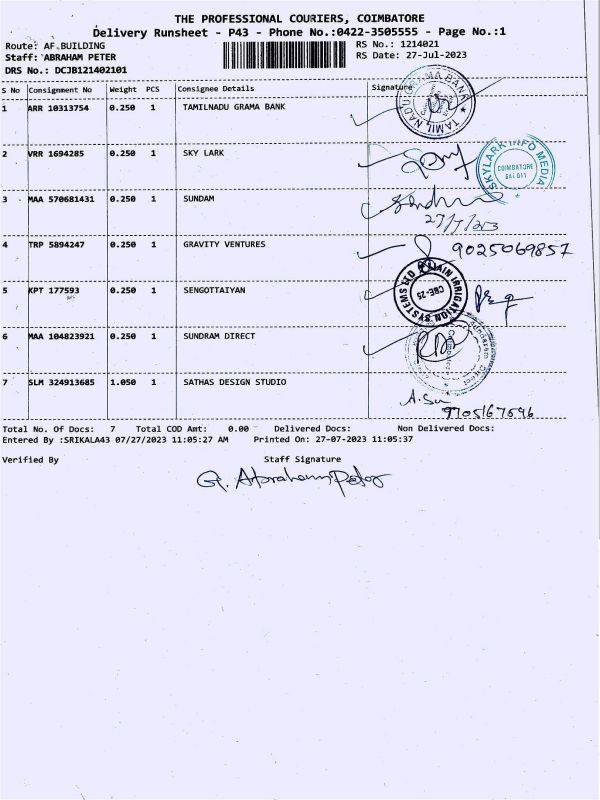 THE PROFESSIONAL COURIERS, COIMBATORE
Delivery Runsheet - P43 - Phone No.:0422-3505555 - Page No.:1
Route: AF.BUILDING RS No.: 1214021
Staff: ABRAHAM PETER RS Date: 27-Jul-2023
DRS No.: DCJB121402101
S No Consignment No Weight PCS Consignee Details Signature
1 ARR 10313754 0.250 1 TAMILNADU GRAMA BANK
TAMIL NADU GRAMA BANK
2 VRR 1694285 0.250 1 SKY LARK
SKYLARK INFO MEDIA
COIMBATORE
641 011
3 MAA 570681431 0.250 1 SUNDAM
27/7/2023
4 TRP 5894247 0.250 1 GRAVITY VENTURES 9025069857
5 KPT 177593 0.250 1 SENGOTTAIYAN
JAIN IRRIGATION SYSTEMS LTD
CBE-25
6 MAA 104823921 0.250 1 SUNDRAM DIRECT
Sundaram Direct
7 SLM 324913685 1.050 1 SATHAS DESIGN STUDIO
9705167696
Total No. Of Docs: 7 Total COD Amt: 0.00 Delivered Docs: Non Delivered Docs:
Entered By :SRIKALA43 07/27/2023 11:05:27 AM Printed On: 27-07-2023 11:05:37
Verified By Staff Signature
G. Abraham Peter